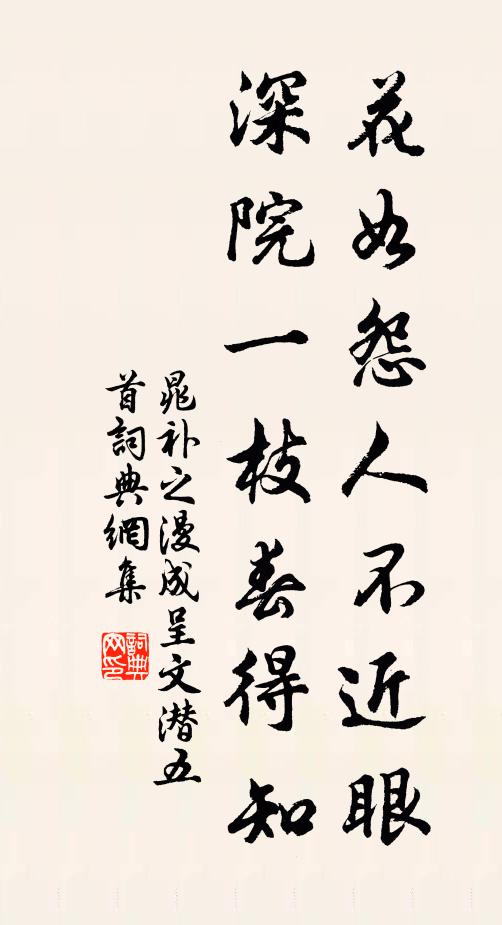 花如怨人不近眼
深院一枝春得知
晁补之漫成呈文潜五
首詞典網集
詞典網印